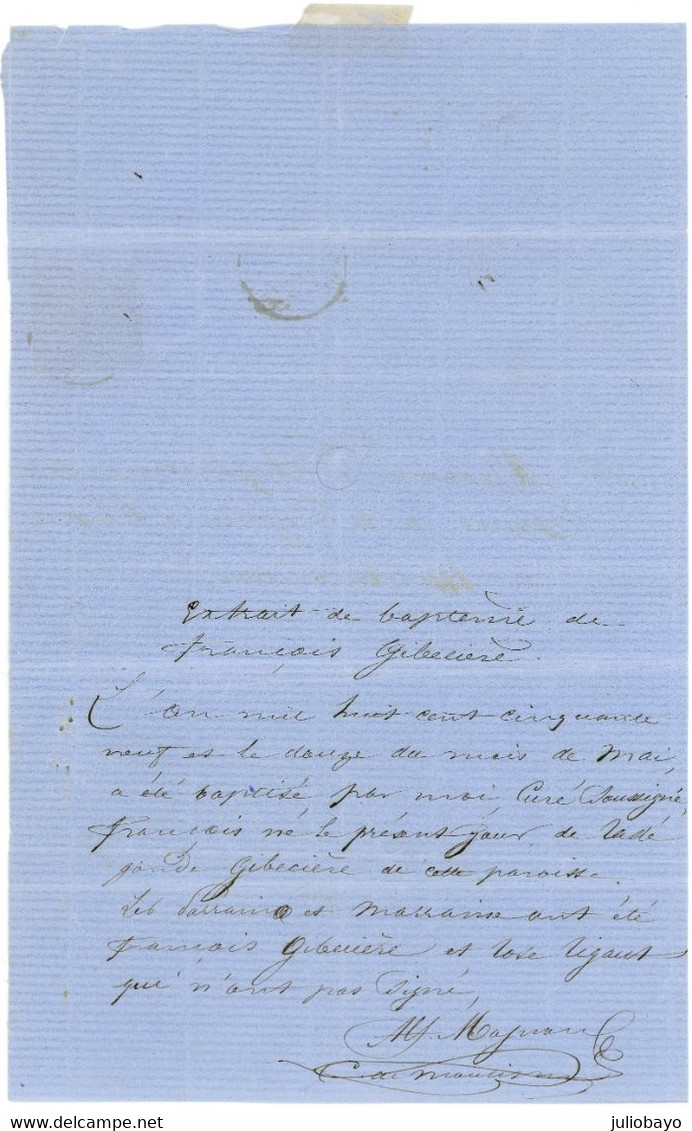 Extrait de bapteme de
François Gibecière.
L'an mil huit cent cinquante
neuf et le douze du mois de Mai,
a été baptisé par moi, Curé Soussigné,
François né le présent jour de Radé
gonde Gibecière de cette paroisse.
Les Parrain et Marraine ont été
François Gibecière et Rose Rigaut
qui n'ont pas signé,
Alf. Magnan
C. de
delcampe.net
juliobayo